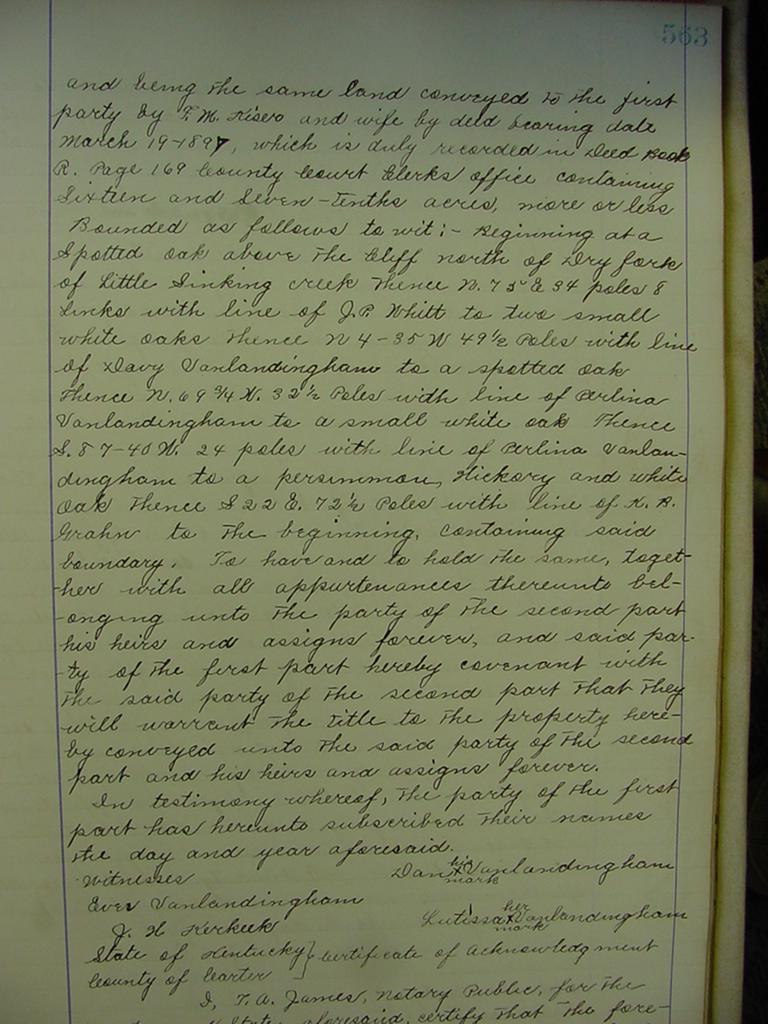 563
and being the same land conveyed to the first
party by F. M. Kiser and wife by deed bearing date
March 19-1897, which is duly recorded in Deed Book
R. Page 169 County Court Clerks office containing
Sixteen and Seven-Tenths acres, more or less
Bounded as follows to wit:- Beginning at a
Spotted oak above the Cliff north of Dry fork
of Little Sinking creek Thence N. 75 E 34 poles 8
Links with line of J. P. Whitt to two small
white oaks Thence N 4-35 W 49½ Poles with line
of Davy Vanlandingham to a spotted oak
Thence N. 69¾ W. 32½ Poles with line of Perlina
Vanlandingham to a small white oak Thence
S. 87-40 W. 24 poles with line of Perlina Vanlan-
dingham to a persimmon, Hickory and white
Oak Thence S 22 E. 72½ Poles with line of K. B.
Grahn to the beginning, containing said
boundary. To have and to hold the same, toget-
-her with all appurtenances thereunto bel-
-onging unto the party of the second part
his heirs and assigns forever, and said par-
-ty of the first part hereby covenant with
the said party of the second part that they
will warrant the title to the property here-
by conveyed unto the said party of the second
part and his heirs and assigns forever.
In testimony whereof, the party of the first
part has hereunto subscribed their names
the day and year aforesaid.
Witnesses Dan his X mark Vanlandingham
Ever Vanlandingham
J. H Kerkeek Lutissa her X mark Vanlandingham
State of Kentucky } Certificate of Acknowledgment
County of Carter
I, T. A. James, Notary Public, for the
State aforesaid, certify that the fore-